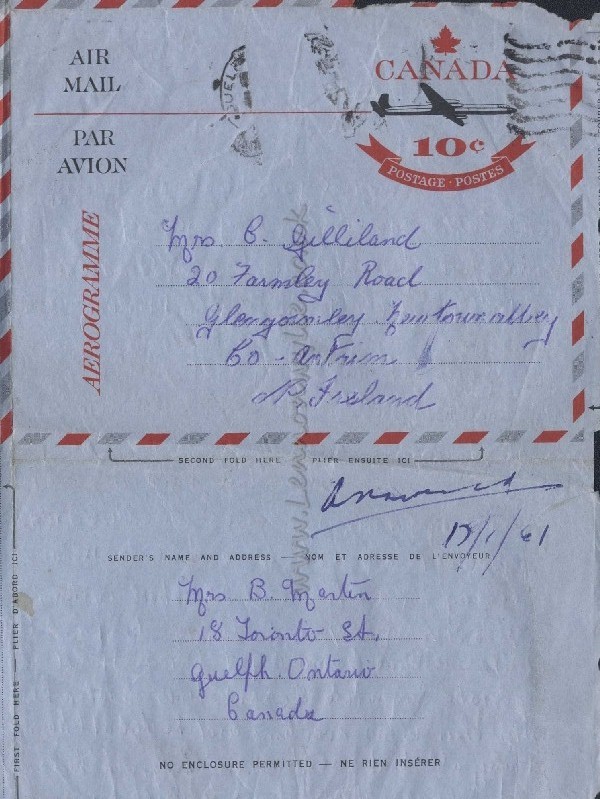 AIR
MAIL
PAR
AVION
GUELPH
CANADA
10¢
POSTAGE · POSTES
AEROGRAMME
Mrs C. Gilliland
20 Farmley Road
Glengormley Newtownabbey
Co - Antrim
N. Ireland
SECOND FOLD HERE — FLIER ENSUITE ICI
Answered
/1/61
SENDER'S NAME AND ADDRESS — NOM ET ADRESSE DE L'ENVOYEUR
Mrs B. Martin
18 Toronto St,
Guelph. Ontario
Canada
FIRST FOLD HERE — PLIER D'ABORD ICI
NO ENCLOSURE PERMITTED — NE RIEN INSÉRER